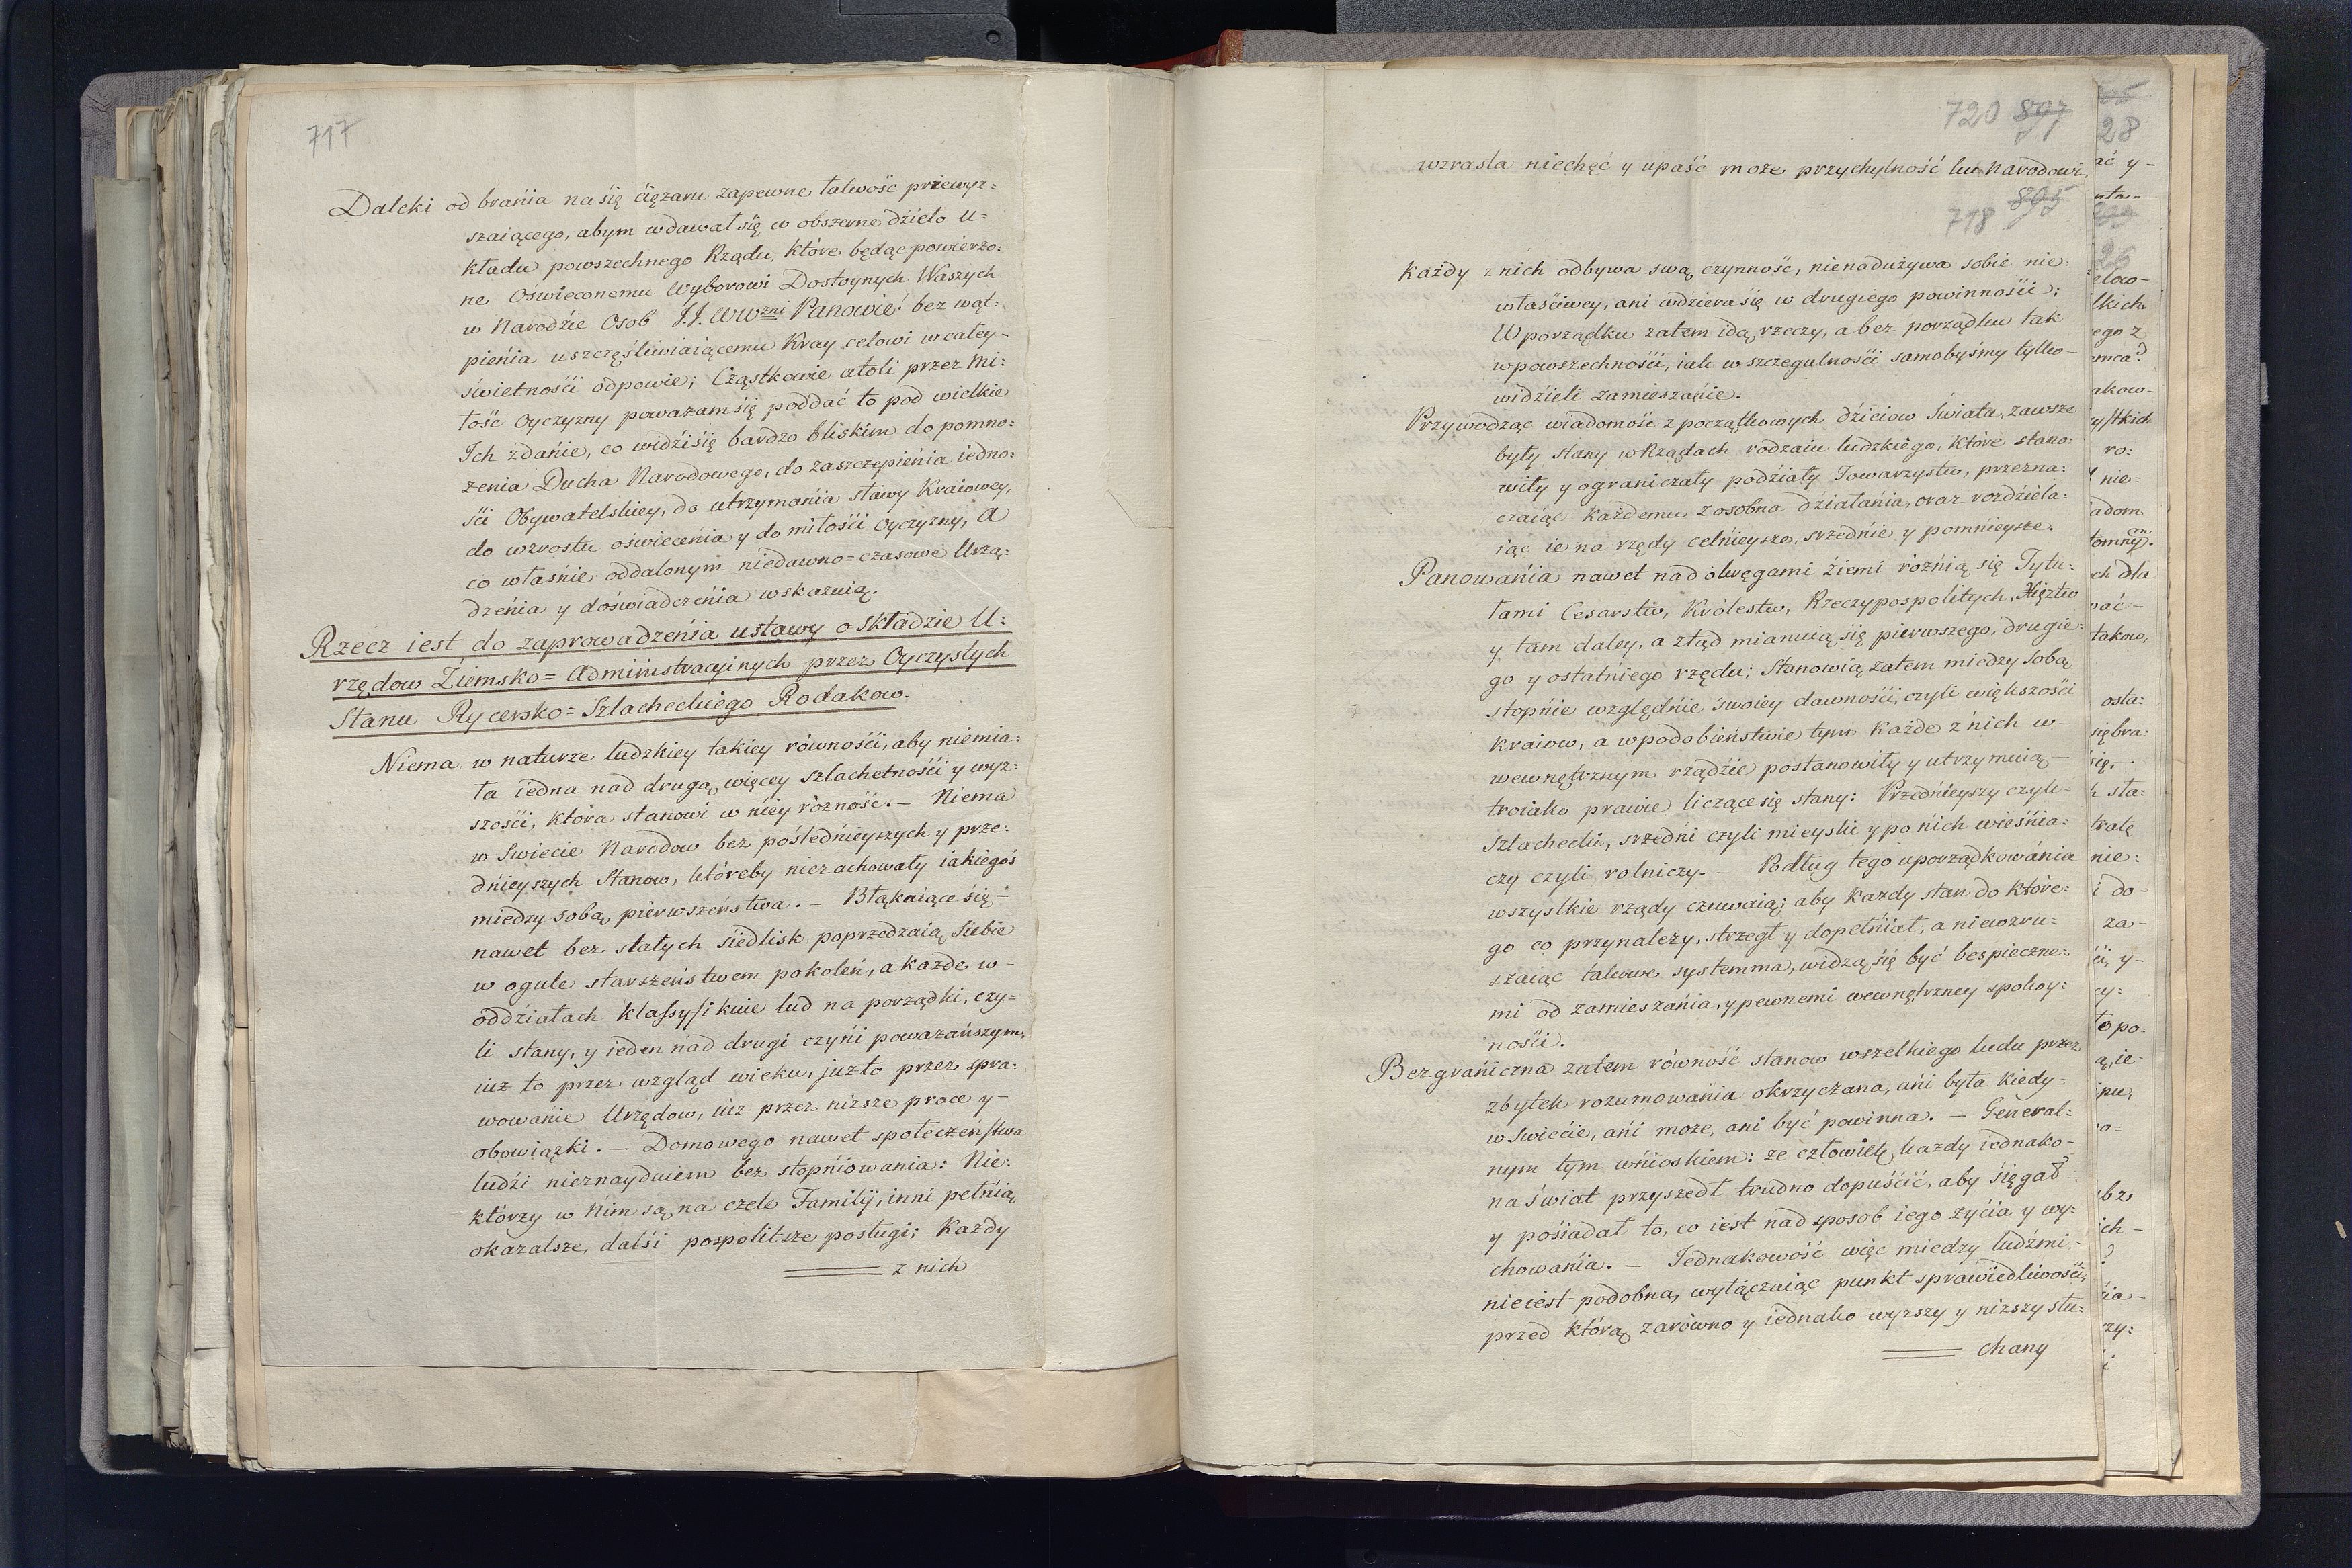 717
Daleki od brańia na się ćięzaru zapewne łatwość przewyz:
szaiącego, abym wdawał się w obszerne dzieło u=
kładu powszechnego Rządu, które będąc powierzo:
ne Oświeconemu Wyborowi Dostoynych Waszych
w Narodźie Osob J.J. WWzni Panowie! bez wąt:
pieńia uszczęśliwiaiącemu Kray celowi w całey-
świetnośći odpowie; Cząstkowie atoli przez Mi:
łość Oyczyzny poważam się poddać to pod wielkie
Ich zdańie, co widźi się bardzo bliskim do pomno:
zenia Ducha Narodowego, do zaszczepieńia iedno:
śći Obywatelskiey, do utrzymańia sławy Kraiowey,
do wzrostu oświeceńia y do miłośći Oyczyzny, A
co właśnie oddalonym niedawno=czasowe Urzą:
dzeńia y doświadczeńia wskazuią.
Rzecz iest do zaprowadzeńia ustawy o składzie U:
rzędow Ziemsko=Administracyinych przez Oyczystych
Stanu Rycersko=Szlacheckiego Rodakow.
Niema w naturze ludzkiey takiey równośći, aby niemia:
ła iedna nad drugą więcey szlachetnośći y wyz:
szośći, która stanowi w niey rózność. - Niema
w Swiecie Narodow bez pośledńieyszych y prze:
dńieyszych Stanow, któreby niezachowały iakiegoś
miedzy sobą pierwszeństwa. - Błąkaiące się -
nawet bez stałych śiedlisk poprzedzaią śiebie
w ogule starszeństwem pokoleń, a kazde w -
oddziałach klassyfikuie lud na porządki, czy=
li stany, y ieden nad drugi czyńi powazańszym,
iuz to przez wzgląd wieku, juz to przez spra:
wowańie Urzędow, iuz przez nizsze prace y -
obowiązki. - Domowego nawet społeczeństwa
ludźi nieznayduiem bez stopńiowania: Nie:
którzy w Nim są na czele Familij, inni pełnią
okazalsze, dalśi pospolitsze posługi; Każdy
z nich
720 897
wzrasta niechęć y upaść moze przychylność ku Narodowi,
718 895
każdy z nich odbywa swą czynność, nienadużywa sobie nie:
właśćiwey, ani wdziera się w drugiego powinnośći;
W porządku zatem idą rzeczy, a bez porządku tak
w powszechnośći, iak w szczegulnośći samobyśmy tylko-
widźieli zamieszańie.
Przywodząc wiadomość z początkowych dźieiow Świata, zawsze
były stany w Rządach rodzaiu ludzkiego, które stano:
wiły y ograniczały podźiały Towarzystw, przezna:
czaiąc każdemu z osobna działańia, oraz rozdźiela:
iąc ie na rzędy celńieysze, srzednie y pomnieysze.
Panowańia nawet nad okręgami źiemi róźńią się Tytu:
łami Cesarstw, Królestw, Rzeczypospolitych, Xięztw
y tam daley, a ztąd mianuią się pierwszego, drugie:
go y ostatńiego rzędu; Stanowią zatem miedzy sobą
stopńie względńie swoiey dawnośći, czyli większośći
kraiow, a w podobieństwie tym każde z nich w -
wewnętrznym rządźie postanowiły y utrzymuią -
troiako prawie liczące się stany: Przedńieyszy czyli-
Szlachecki, srzedni czyli mieyski y po nich wieśńia:
czy czyli rolniczy. - Podług tego uporządkowańia
wszystkie rządy czuwaią; aby kazdy stan do które:
go co przynalezy, strzegł y dopełńiał, a niewzru=
szaiąc takowe systemma, widzą się być bespieczne:
mi od zamieszańia, y pewnemi wewnętrzney spokoy:
nośći.
Bezgrańiczna zatem równość stanow wszelkiego ludu przez
zbytek rozumowańia okrzyczana, ańi była kiedy=
w Swiećie, ańi moze, ani być powinna. - General:
nym tym wńioskiem: ze człowiek kazdy iednako-
na świat przyszedł trudno dopuśćić, aby śięgał
y pośiadał to, co iest nad sposob iego zyćia y wy:
chowańia. - Jednakowość więc miedzy ludźmi -
nieiest podobna, wyłączaiąc punkt sprawiedliwośći,
przed którą zarówno y iednako wyzszy y nizszy słu:
chany
28
ać y -
26
elow-
lkich
ego z
akow-
ystkich
ro:
nie=
adom
ch dla
wać -
takow,
osta:
się bra:
się, -
sta:
tratę
nie:
i do-
za-
to po:
ą, ie-
ich -
ia-
rzy: